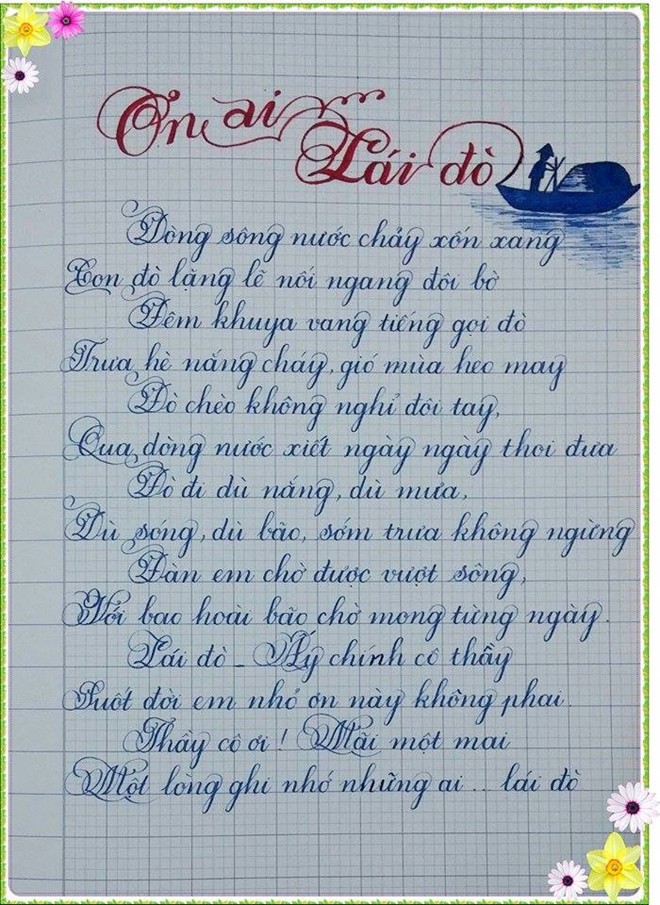 Ơn ai
Lái đò
Dòng sông nước chảy xốn xang
Con đò lặng lẽ nối ngang đôi bờ
Đêm khuya vang tiếng gọi đò
Trưa hè nắng cháy, gió mùa heo may
Đò chèo không nghỉ đôi tay,
Qua dòng nước xiết ngày ngày thoi đưa
Đò đi dù nắng, dù mưa,
Dù sóng, dù bão, sớm trưa không ngừng
Đàn em chờ được vượt sông,
Với bao hoài bão chờ mong từng ngày.
Lái đò - Ấy chính cô thầy
Suốt đời em nhớ ơn này không phai.
Thầy cô ơi! Mãi một mai
Một lòng ghi nhớ những ai .. lái đò